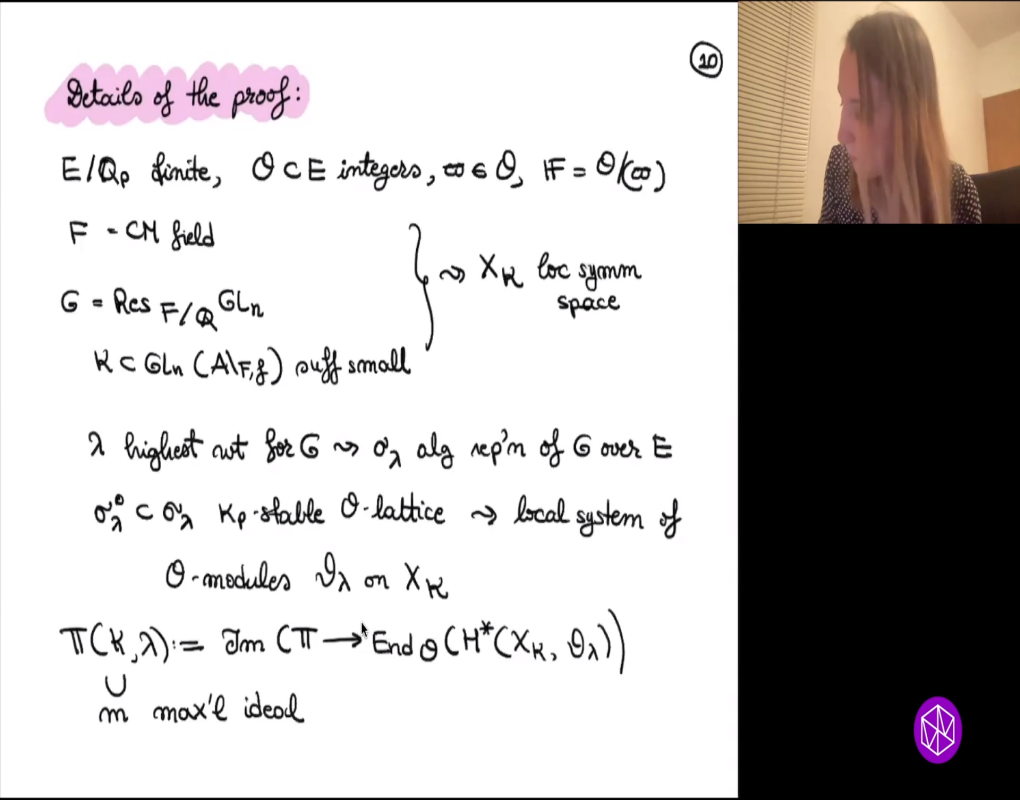 10
Details of the proof:
E/Qp finite, O ⊂ E integers, ϖ ∈ O, F = O/(ϖ)
F - CM field
G = Res F/Q GLn
K ⊂ GLn (A F,f) suff small
} ⇝ X_K loc symm
space
λ highest wt for G ⇝ σ_λ alg rep'n of G over E
σ_λ° ⊂ σ_λ Kp-stable O-lattice ⇝ local system of
O-modules ϑ_λ on X_K
T(K,λ) := Im (T → End_O (H*(X_K, ϑ_λ))
∪
m max'l ideal